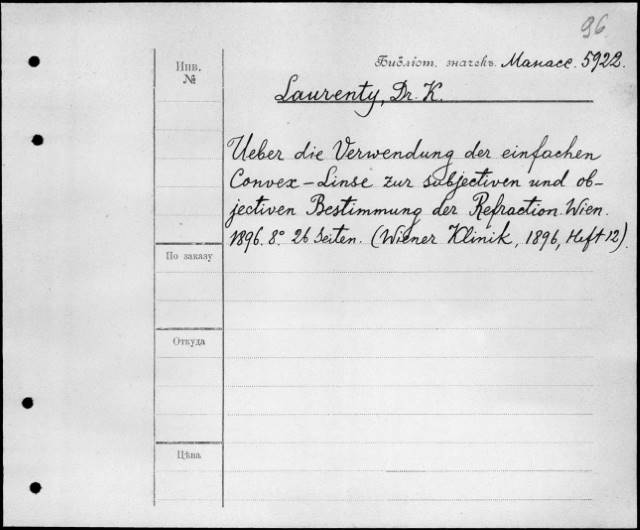 96.
Библіот. значекъ. Манасс. 5922.
Инв.
№
Laurenty, Dr. K.
Ueber die Verwendung der einfachen
Convex-Linse zur subjectiven und ob-
jectiven Bestimmung der Refraction. Wien.
1896. 8º 26 Seiten. (Wiener Klinik, 1896, Heft 12).
По заказу
Откуда
Цѣна